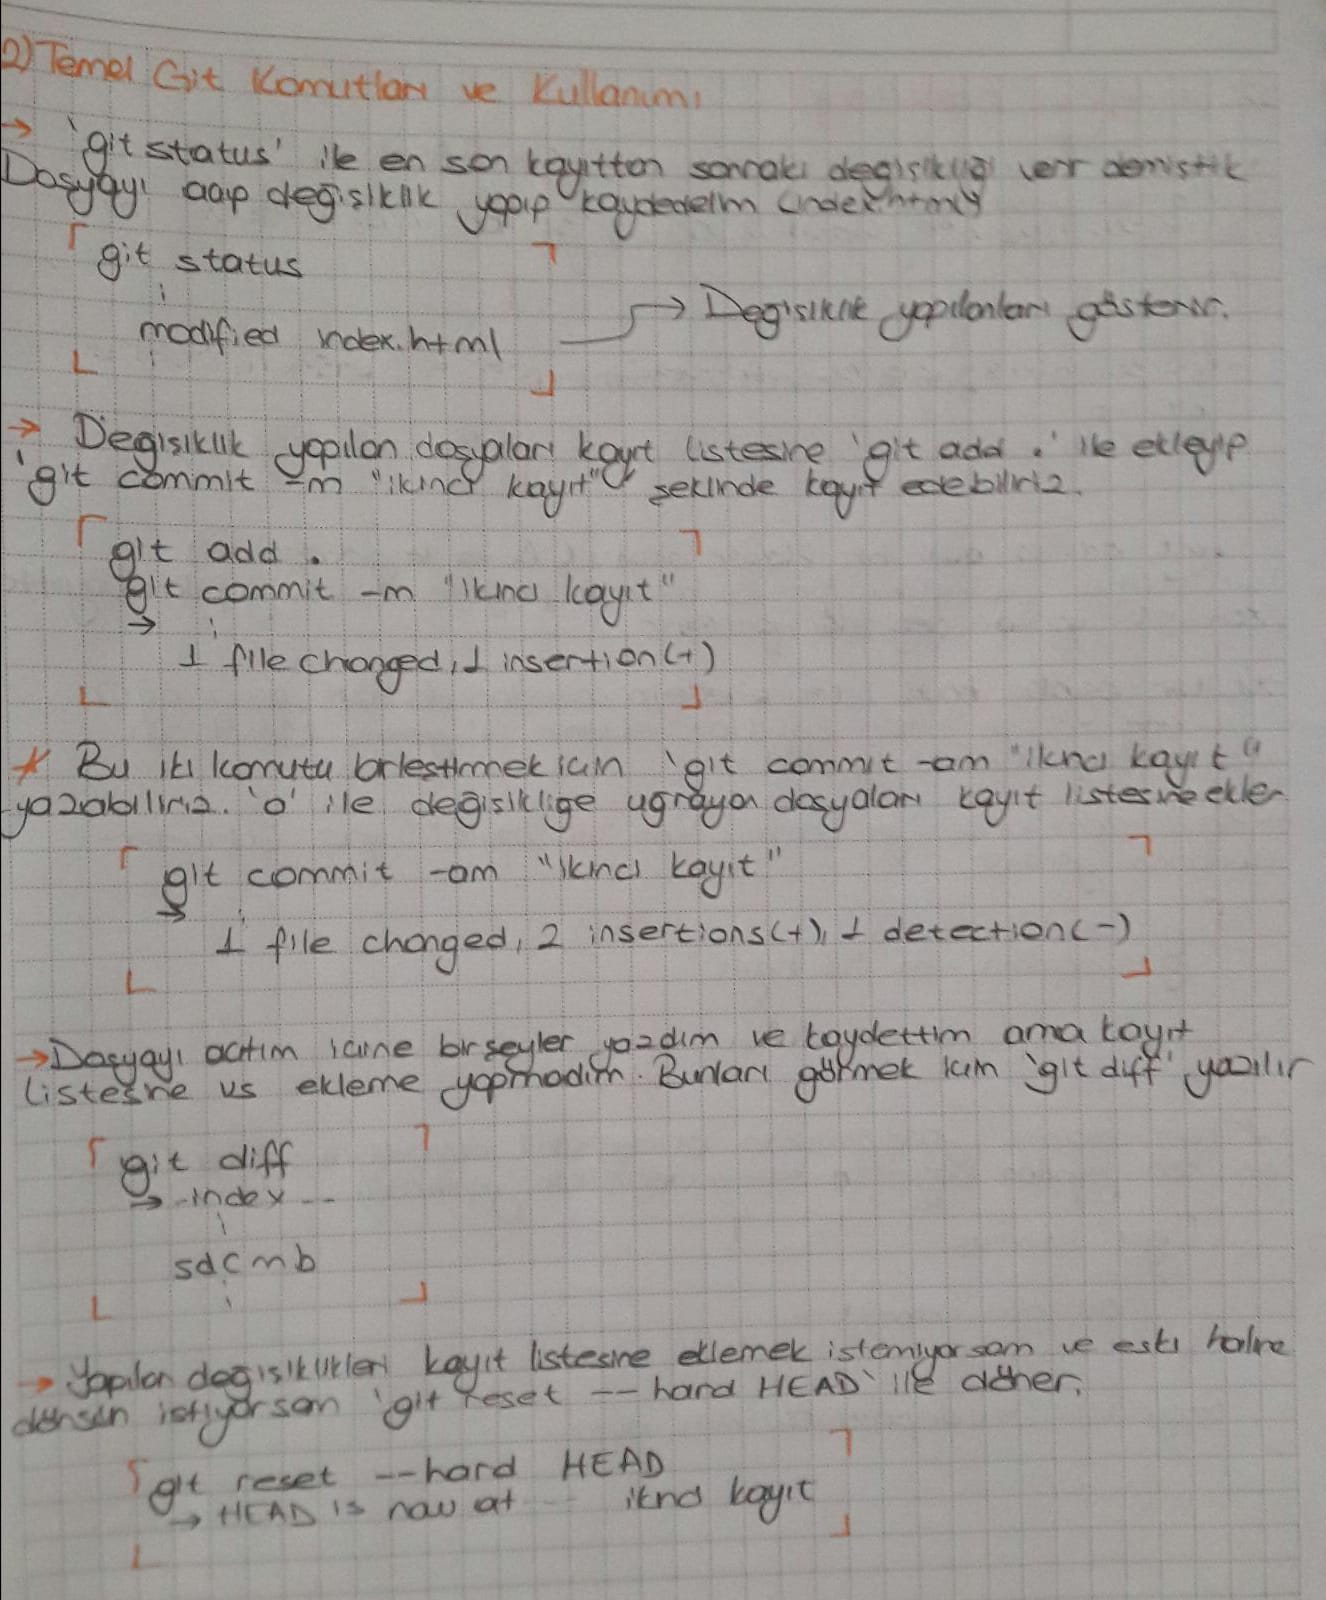 2) Temel Git Komutları ve Kullanımı
→ 'git status' ile en son kayıttan sonraki degisikliği verir demistik
Dosyayı açıp değisiklik yapıp kaydedelim (index.html)
git status
modified index.html → Degisiklik yapılanları gösterir.
→ Degisiklik yapılan dosyaları kayıt listesine 'git add .' ile ekleyip
'git commit -m "ikinci kayıt"' seklinde kayıt edebiliriz.
git add .
git commit -m "ikinci kayıt"
→
1 file changed, 1 insertion(+)
* Bu iki komutu birlestirmek icin 'git commit -am "ikinci kayıt"
yazabiliriz. 'a' ile degisiklige ugrayan dosyaları kayıt listesine ekler
git commit -am "ikinci kayıt"
→
1 file changed, 2 insertions(+), 1 detection(-)
→ Dosyayı actım icine birseyler yazdım ve kaydettim ama kayıt
listesine vs ekleme yapmadım. Bunları görmek icin 'git diff' yazılır
git diff
→ index --
sdcmb
→ Yapılan degisiklikleri kayıt listesine eklemek istemiyorsam ve eski haline
dönsün istiyorsam 'git reset --hard HEAD' ile döner.
git reset --hard HEAD
→ HEAD is now at -- ikinci kayıt